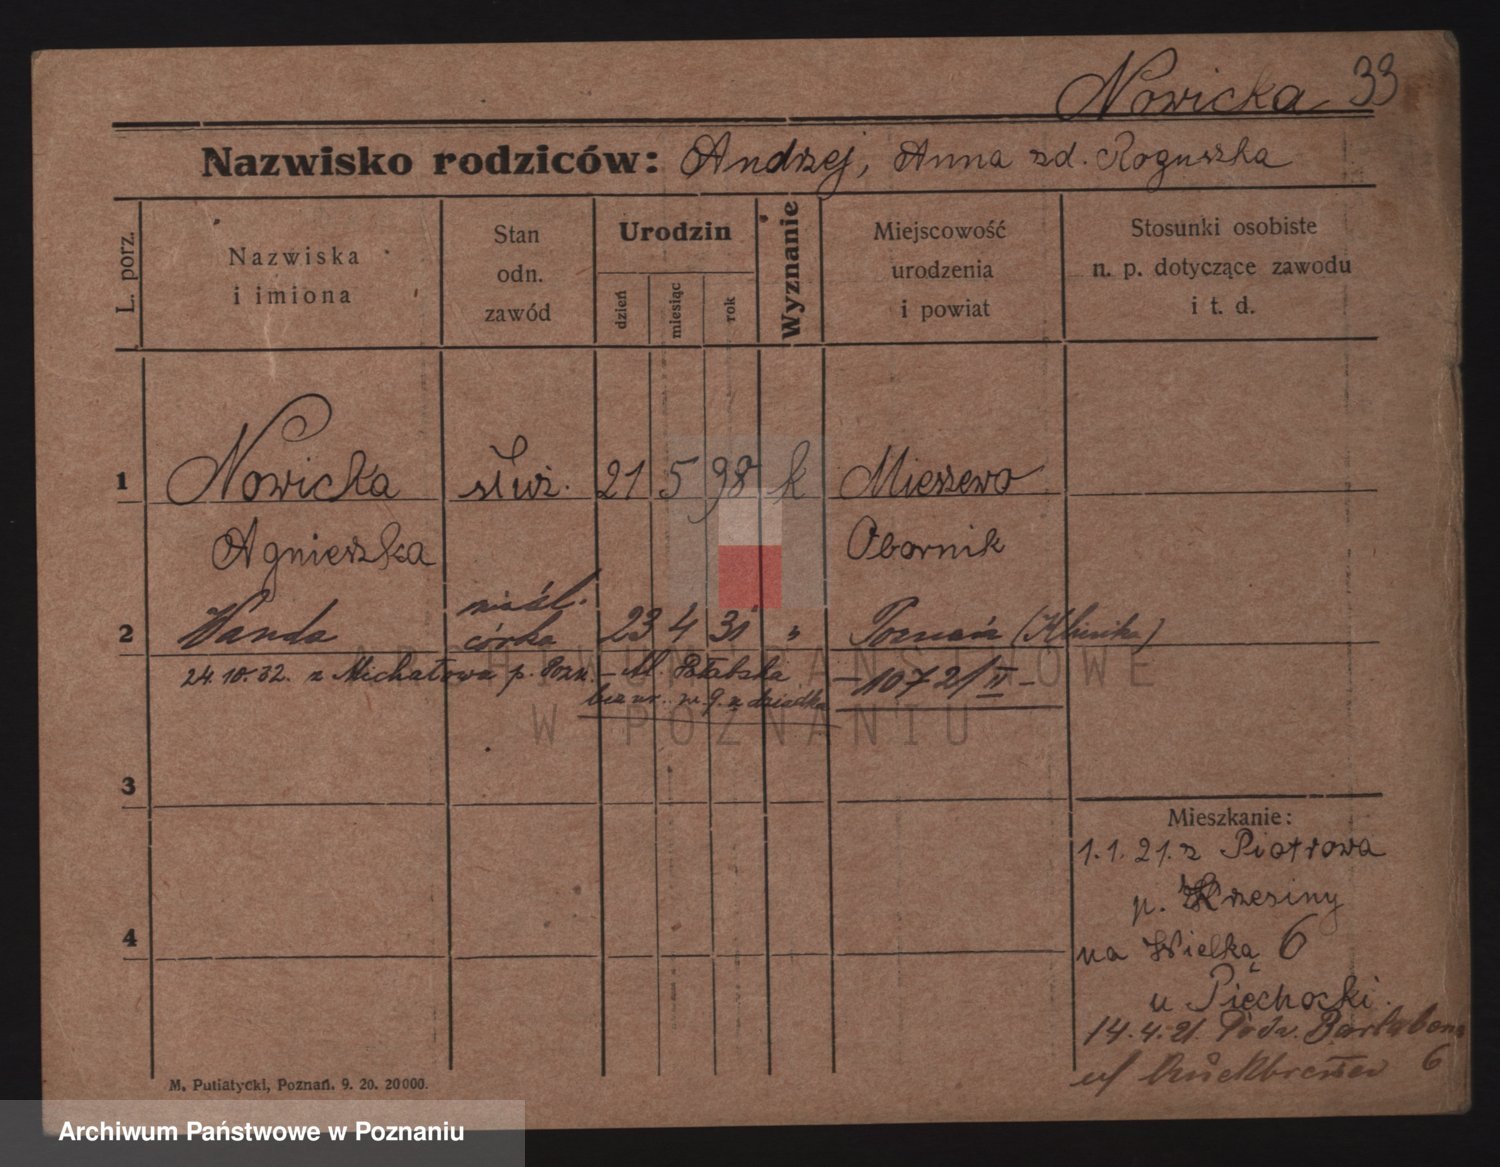 Nowicka 33
Nazwisko rodziców: Andrzej, Anna zd. Roguszka
L. porz.
Nazwiska
i imiona
Stan
odn.
zawód
Urodzin
dzień
miesiąc
rok
Wyznanie
Miejscowość
urodzenia
i powiat
Stosunki osobiste
n. p. dotyczące zawodu
i t. d.
1 Nowicka służ. 21 5 98 k Mieszewo
Agnieszka Obornik
nieśl.
2 Wanda córka 23 4 31 „ Poznań (Klinika)
24.10.32. z Michałowa p. Pozn. – M. – 10721/II –
w. g. z dziadka
3
Mieszkanie:
1.1.21. z Piotrowa
p. Krzesiny
4
na Wielką 6
u Piechocki.
14.4.21.
u/ 6
M. Putiatycki, Poznań. 9. 20. 20000.
ARCHIWUM PAŃSTWOWE
W POZNANIU
Archiwum Państwowe w Poznaniu